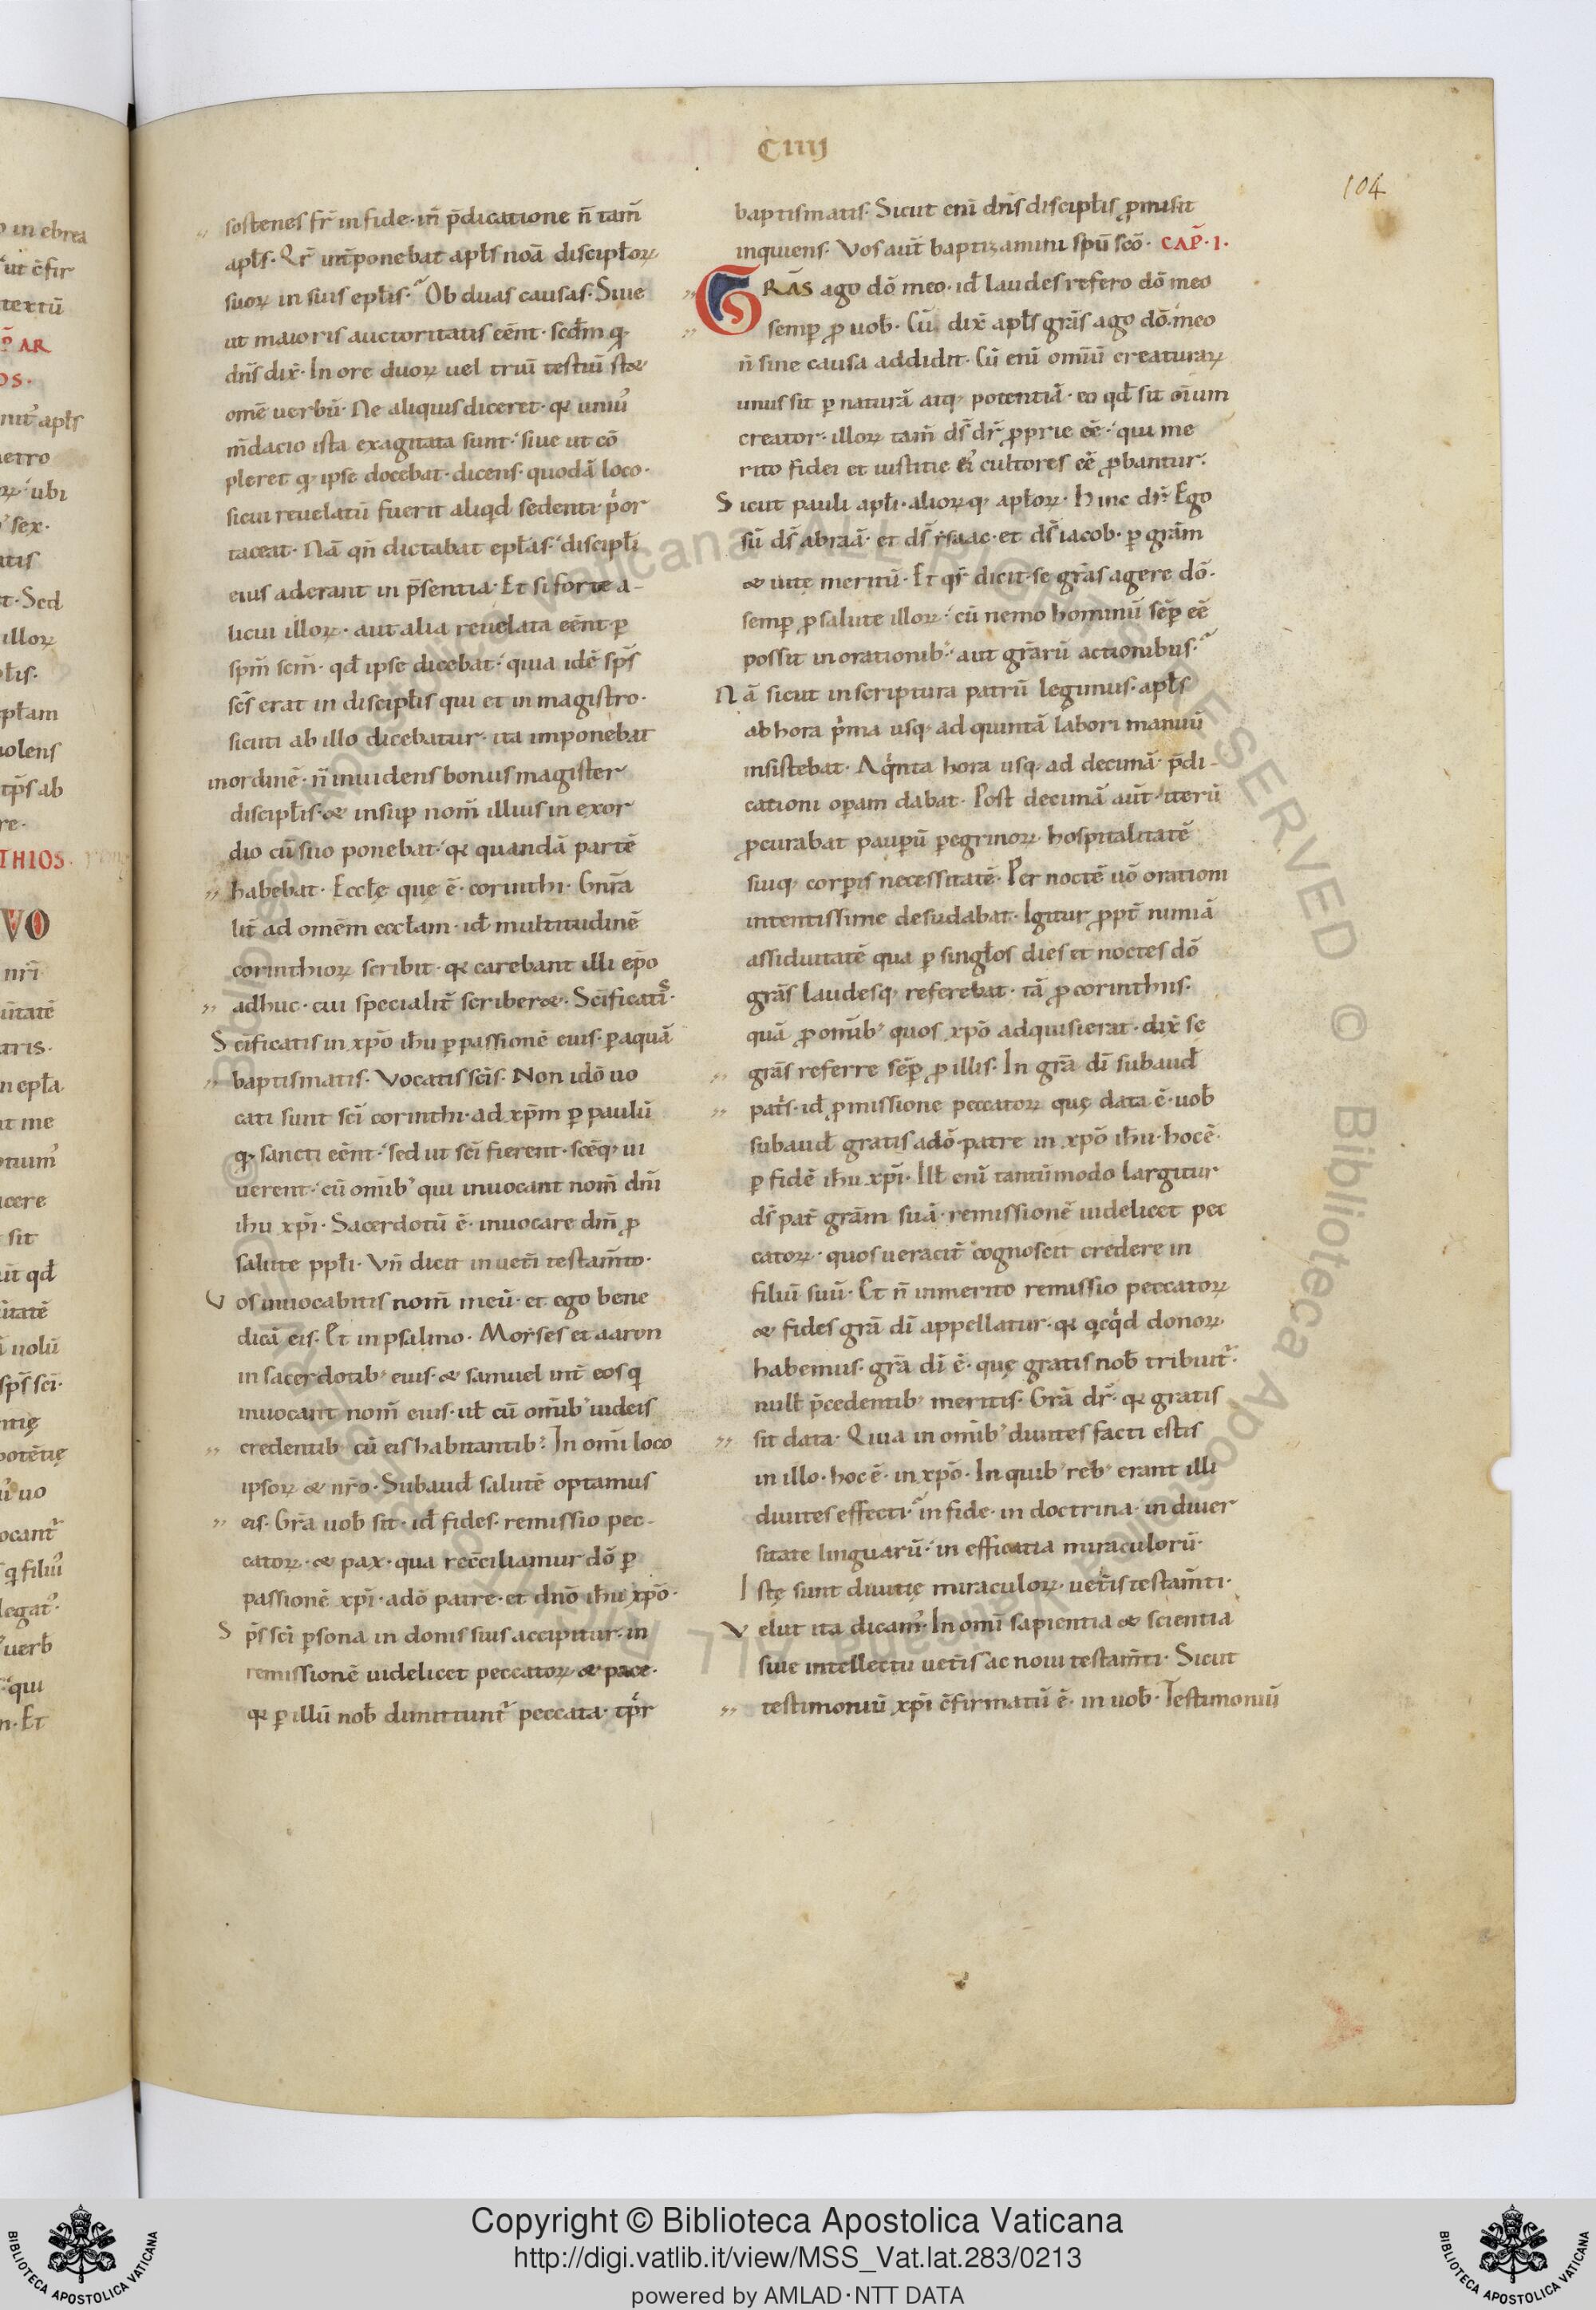 CIIIJ
104
sostenes fr̄ in fide· in̄ p̄dicatione n̄ tam̄
apl̄s· Qr̄ int̄ponebat apl̄s noā discipl̄oꝝ
suoꝝ in suis epl̄is· Ob duas causas· Siue
ut maioris auctoritatis eēnt· scd̄m ꝙ
dn̄s dix̄· In ore duoꝝ uel triū testiū st&
omē uerbū· Ne aliquis diceret· qꝛ uniꝰ
m̄dacio ista exagitata sunt· siue ut cō
pleret ꝙ ipse docebat· dicens· quodā loco·
sicui reuelatū fuerit aliqd sedenti· p̓or
taceat· Nā qn̄ dictabat epl̄as· discipl̄i
eius aderant in p̄sentia· Et si forte a-
licui illoꝝ· aut alia reuelata eēnt ꝑ
spm̄ scm̄· qđ ipse dicebat· quia idē sps̄
scs̄ erat in discipl̄is qui et in magistro·
sicuti ab illo dicebatur· ita imponebat
in ordinē· n̄ inuidens bonus magister
discipl̄is· & insuꝑ nom̄ illius in exor
dio cū suo ponebat· qꝛ quandā partē
habebat· Eccl̄ę quę ē· corinthi· Gnr̄a
lit̄ ad omēm eccl̄am· iđ multitudinē
corinthioꝝ scribit· qꝛ carebant illi ep̄o
adhuc· cui specialit̄ scriber&· Scīficatis·
Scīficatis in xp̄o ih̄u ꝑ passionē eius· ꝑ aquā
baptismatis· Vocatis scīs· Non idō uo
cati sunt scī corinthi· ad xp̄m ꝑ paulū
ꝙ sancti eēnt· sed ut scī fierent· scēqꝫ ui
uerent· cū omībꝰ qui inuocant nom̄ dnī
ih̄u xp̄i· Sacerdotū ē· inuocare dm̄ ꝓ
salute ppl̄i· Vn̄ dicit in uet̄i testam̄to·
Vos inuocabitis nom̄ meū· et ego bene
dicā eis· Et in psalmo· Moyses et aaron
in sacerdotibꝰ eius· & samuel int̄ eos q̓
inuocant nom̄ eius· ul̄ cū omībꝰ iudeis
credentibꝰ cū eis habitantibꝰ· In omī loco
ipsoꝝ & nr̄o· Subauđ salutē optamus
eis· Grā uob̄ sit· iđ fides· remissio pec-
catoꝝ· & pax· qua reccīliamur dō ꝑ
passionē xp̄i· adō patre· et dnō ih̄u xp̄o·
Sps̄ scī ꝑsona in donis suis accipitur· in
remissionē uidelicet peccatoꝝ & pace·
qꝛ ꝑ illū nob̄ dimittunt̄ peccata·
baptismatis· Sicut enī dn̄s discipl̄is ꝓmisit
inquiens· Vos aut̄ baptizamini spū scō· CAP̄· I·
GRAS ago dō meo· iđ laudes refero dō meo
semꝑ ꝓ uob̄· Cū dix̄ apl̄s grās ago dō meo
n̄ sine causa addidit· Cū enī omiū creaturaꝝ
unus sit ꝑ naturā atqꝫ potentiā· eo qđ sit oīum
creator· illoꝝ tam̄ ds̄ dr̄ ꝓprie eē· qui me
rito fidei et iustitie eiꝰ cultores eē ꝓbantur·
Sicut pauli apl̄i· alioꝝqꝫ apl̄oꝝ· Hinc dr̄· Ego
sū ds̄ abraā· et ds̄ ysaac· et ds̄ iacob· ꝑ grām
& uitę meritū· Et qr̄ dicit· se grās agere dō·
semꝑ ꝓ salute illoꝝ· cū nemo hominū sēꝑ eē
possit in orationibꝰ aut grārū actionibus·
Nā sicut in scriptura patrū legimus· apl̄s
ab hora p̓ma usqꝫ ad quintā labori manuū
insistebat· Aq̓nta hora usqꝫ ad decimā· p̄di-
cationi oꝑam dabat· Post decimā aut̄· iterū
ꝓcurabat pauꝑū ꝑegrinoꝝ· hospitalitatē
siuqꝫ corꝑis necessitatē· Per noctē uō orationi
intentissime desudabat· Igitur ꝓpt̄ nimiā
assiduitatē qua ꝑ singl̄os dies et noctes dō
grās laudesqꝫ referebat· tā ꝓ corinthiis·
quā ꝓ omībꝰ quos xp̄o adquisierat· dix̄ se
grās referre sēꝑ ꝓ illis· In grā dī subauđ
pat̄s· iđ ꝓ missione peccatoꝝ quę data ē· uob̄
subauđ gratis adō· patre in xp̄o ih̄u· hoc ē·
ꝑ fidē ih̄u xp̄i· Ill̄ enī tantūmodo largitur
ds̄ pat̄ grām suā· remissionē uidelicet pec
catoꝝ· quos ueracit̄ cognoscit credere in
filiū suū· Et n̄ inmerito remissio peccatoꝝ
& fides grā dī appellatur· qꝛ qcq̓d donoꝝ
habemus· grā dī ē· quę gratis nob̄ tribuit̄·
null̄ p̄cedentibꝰ meritis· Grā dr̄· qꝛ gratis
sit data· Quia in omībꝰ diuites facti estis
in illo· hoc ē· in xp̄o· In quibꝰ rebꝰ erant illi
diuites effecti· in fide· in doctrina· in diuer
sitate linguarū· in efficatia miraculorū·
Istę sunt diuitię miraculoꝝ· uet̄is testam̄ti·
Velut ita dicamꝰ· In omī sapientia & scientia
siue intellectu uet̄is ac noui testam̄ti· Sicut
testimoniū xp̄i c̄firmatū ē· in uob̄· Testimoniū
Copyright © Biblioteca Apostolica Vaticana
http://digi.vatlib.it/view/MSS_Vat.lat.283/0213
powered by AMLAD·NTT DATA